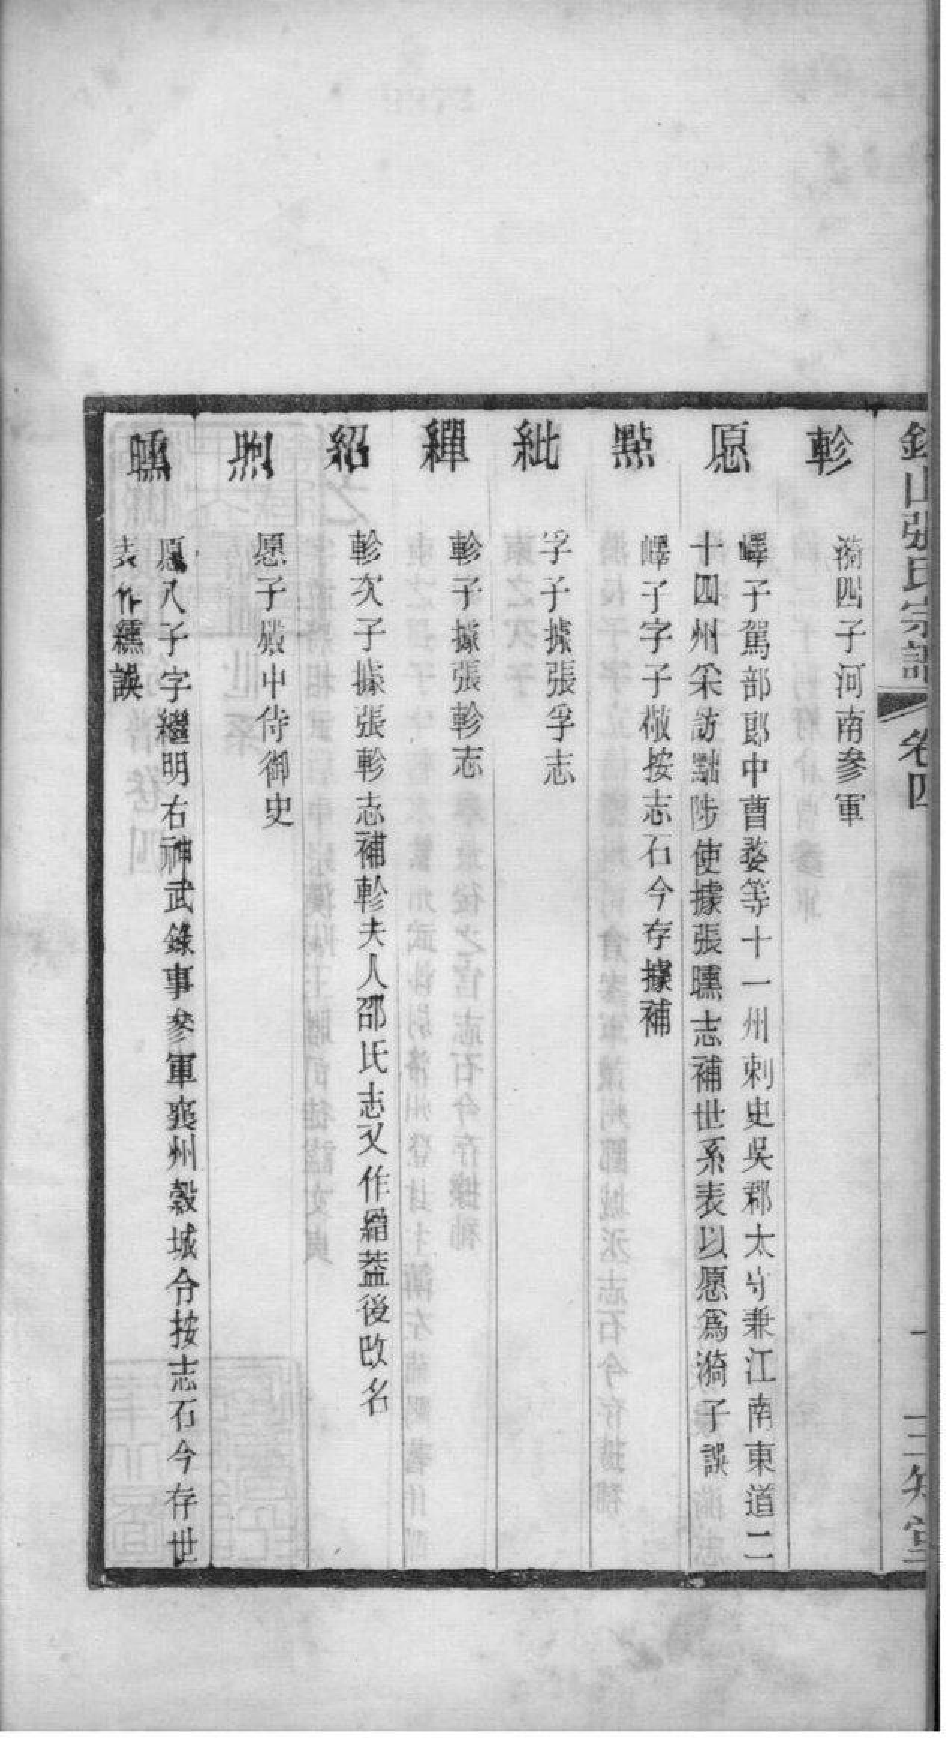 張氏宗譜 卷四
三知堂
軫
漪四子河南參軍
愿
嶧子駕部郎中曹婺等十一州刺史吳郡太守兼江南東道二
十四州采訪黜陟使據張曛志補世系表以愿爲漪子誤
點
嶧子字子敬按志石今存據補
紪
孚子據張孚志
繟
軫子據張軫志
紹
軫次子據張軫志補軫夫人邵氏志又作繝葢後改名
煦
愿子殿中侍御史
曛
愿八子字繼明右神武錄事參軍襄州穀城令按志石今存世
表作纁誤